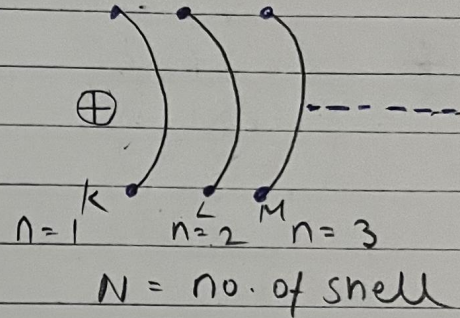 K L M
n = 1 n = 2 n = 3
N = no. of shell